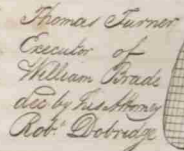 Thomas Turner
Executor of
William Brade
dec by his Attorney
Robt Dobridge